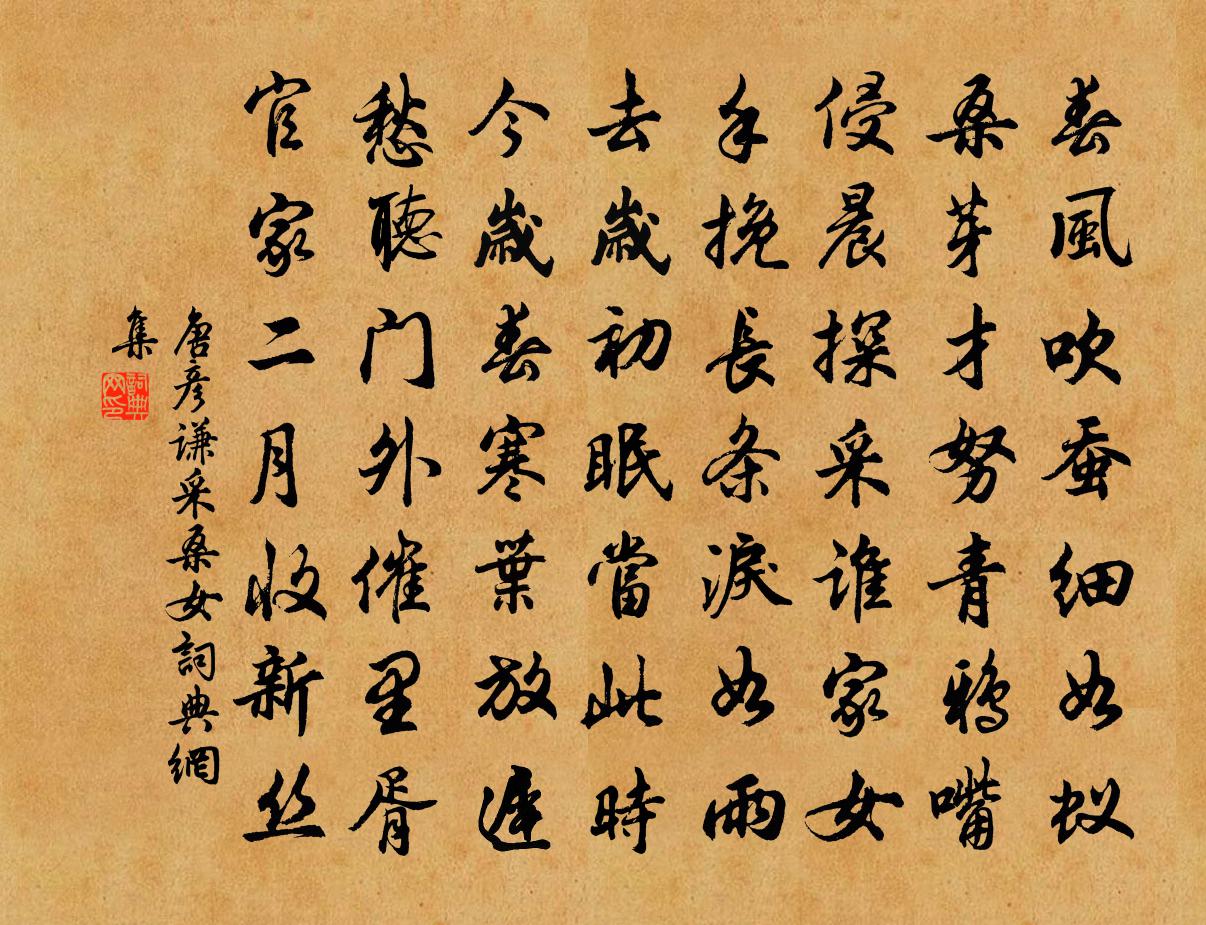 春風吹蚕細如蚁
桑芽才努青鴉嘴
侵晨探采谁家女
手挽長条淚如雨
去歲初眠當此時
今歲春寒葉放遲
愁聽门外催里胥
官家二月收新丝
唐彦谦采桑女詞典網
集
詞典
网印